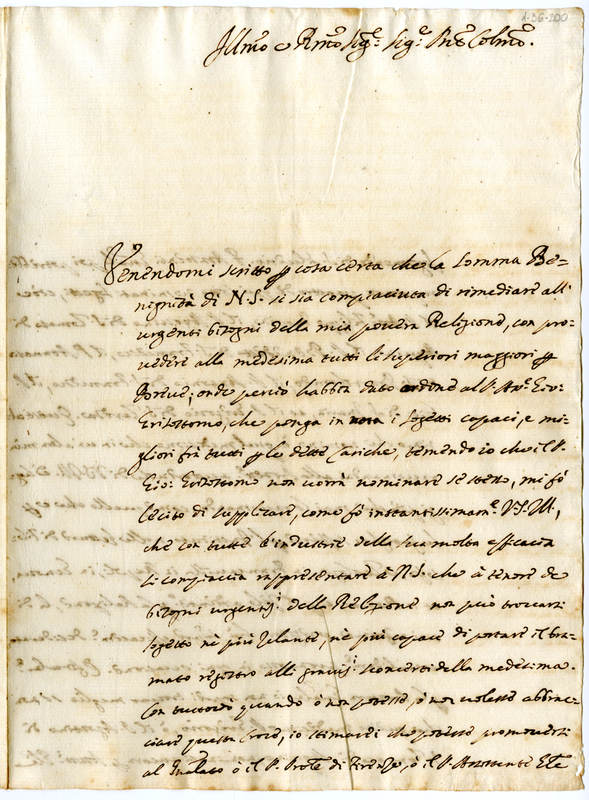 1-36-200
Illmo e Rmo Sigr. Sigr. Pne Colmo.
Venendomi scritto p cosa certa che la somma Be=
nignità di N.S. si sia compiaciuta di rimediare all'
urgenti bisogni della mia povera Religione, con pro=
vedere alla medesima tutti li superiori maggiori p
Breve; onde perciò habbia dato ordine al P. Gio:
Grisostomo, che ponga in nota i sogetti capaci, e mi=
gliori frà tutti p le dette Cariche, temendo io che il P.
Gio: Grisostomo non vorrà nominare se stesso, mi fò
lecito di supplicare, come fò instantissimamte. V.S. Ill,
che con tutte l'industrie della sua molta efficacia
si compiaccia rappresentare à N.S. che à tenore de
bisogni urgentissi della Religione non può trovarsi
sogetto nè più zelante, nè più capace di portare il bra=
mato registro alli gravissi sconcerti della medesima.
Con tuttociò quando ò non potesse, ò non volesse abbrac=
ciare questa Croce, io stimarei che potesse promoversi
al Gnalato ò il P. Prole di Firenze, ò il P. Assistente